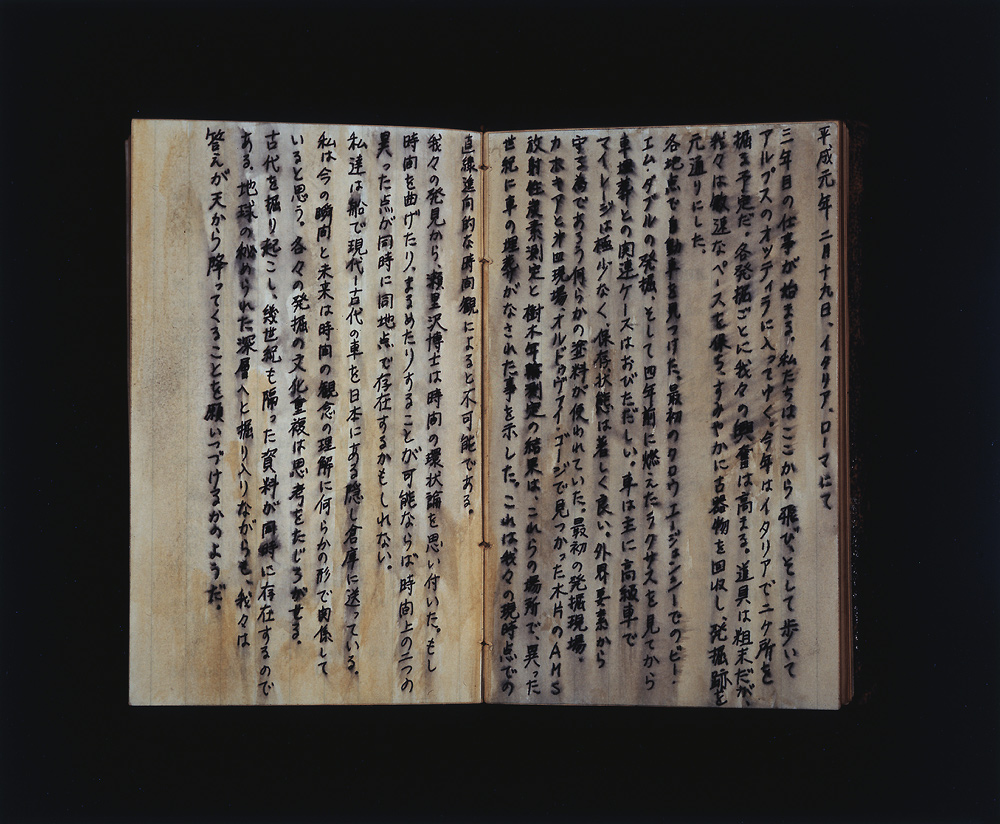 平成元年 二月十九日、イタリア、ローマにて
三年目の仕事が始まる。私たちはここから飛び、そして歩いて
アルプスのオッティラに入ってゆく。今年はイタリアで二ケ所を
掘る予定だ。各発掘ごとに我々の興奮は高まる。道具は粗末だが、
我々は敏速なペースを保ち、すみやかに古器物を回収し、発掘跡を
元通りにした。
各地点で自動車を見つけた。最初のクロウ・エージェンシーでのビー・
エム・ダブルの発掘、そして四年前に燃えたラクサスを見てから
車埋葬との関連ケースはおびただしい。車は主に高級車で
マイレージは極少なく、保存状態は著しく良い。外界要素から
守る為であろう何らかの塗料が使われていた。最初の発掘現場、
カホキアと才四現場、オルドゥヴァイ・ゴージで見つかった木片のAMS
放射性炭素測定と樹木年輪測定の結果は、これらの場所で、異った
世紀に車の埋葬がなされた事を示した。これは我々の現時点での
直線進向的な時間観によると不可能である。
我々の発見から、瀬里沢博士は時間の環状論を思い付いた。もし
時間を曲げたり、まるめたりすることが可能ならば時間上の二つの
異った点が同時に同地点で存在するかもしれない。
私達は船で現代ー古代の車を日本にある隠し倉庫に送っている。
私は今の瞬間と未来は時間の観念の理解に何らかの形で関係して
いると思う。各々の発掘の文化重複は思考をたじろがせる。
古代を掘り起こし、幾世紀も隔った資料が同時に存在するので
ある。地球の秘められた深層へと掘り入りながらも、我々は
答えが天から降ってくることを願いつづけるかのようだ。